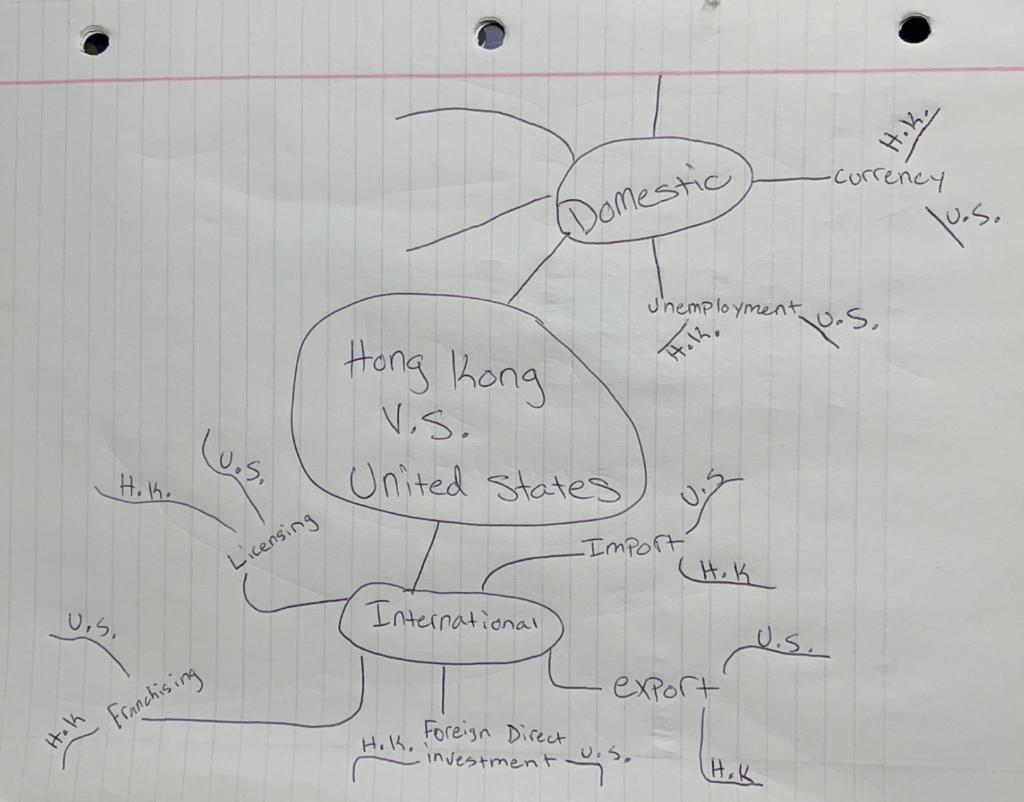 H.K.
Domestic
currency
U.S.
Unemployment
U.S.
H.K.
Hong Kong
V.S.
United States
U.S.
H.K.
Licensing
U.S
Import
H.K
International
U.S.
Franchising
H.K
U.S.
export
H.K
Foreign Direct
H.K.
investment
U.S.